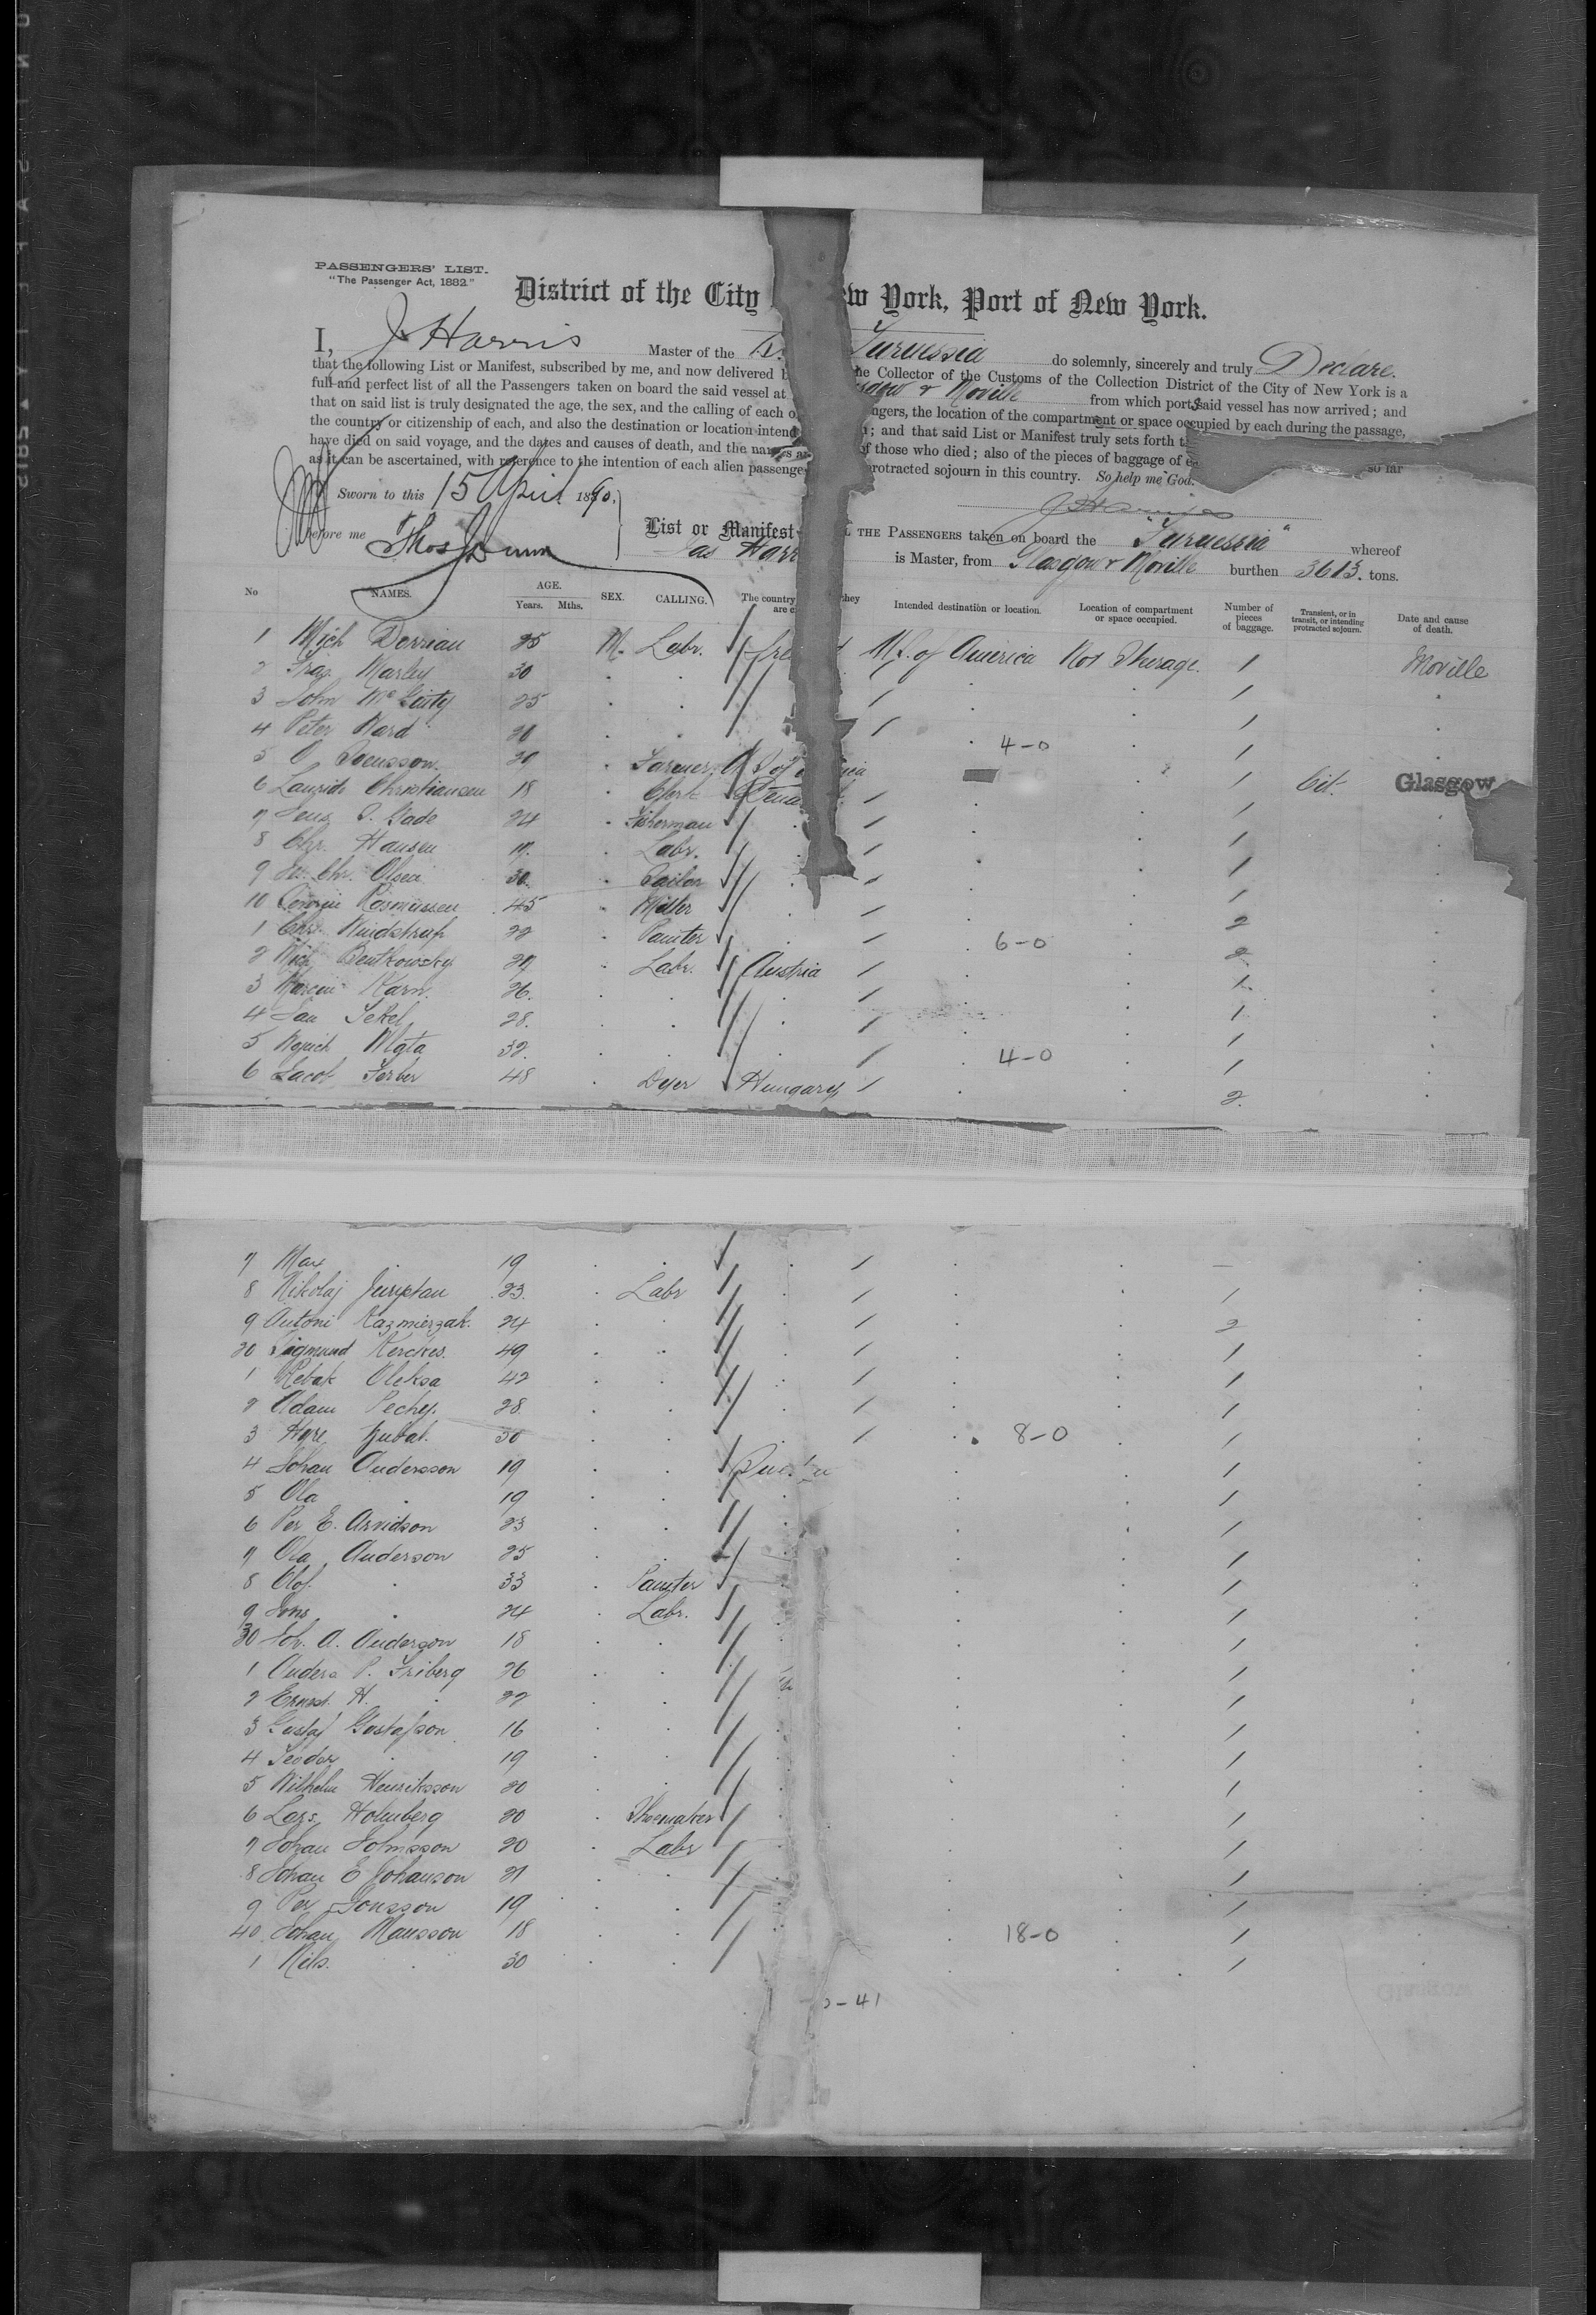 PASSENGERS' LIST.
"The Passenger Act, 1882."
District of the City ew York, Port of New York.
I, J Harris Master of the Furnessia do solemnly, sincerely and truly Declare.
that the following List or Manifest, subscribed by me, and now delivered he Collector of the Customs of the Collection District of the City of New York is a
full and perfect list of all the Passengers taken on board the said vessel at sgow & Moville from which ports said vessel has now arrived; and
that on said list is truly designated the age, the sex, and the calling of each o ngers, the location of the compartment or space occupied by each during the passage,
the country or citizenship of each, and also the destination or location intend ; and that said List or Manifest truly sets forth t
have died on said voyage, and the dates and causes of death, and the names a of those who died; also of the pieces of baggage of e so far
as it can be ascertained, with reference to the intention of each alien passenge protracted sojourn in this country. So help me God.
Sworn to this 15 April 1890.
before me Thos Dunn
List or Manifest L THE PASSENGERS taken on board the "Furnessia" whereof
Jas Harr is Master, from Glasgow & Moville burthen 3613. tons.
No NAMES. AGE. Years. Mths. SEX. CALLING. The country they are c Intended destination or location. Location of compartment or space occupied. Number of pieces of baggage. Transient, or in transit, or intending protracted sojourn. Date and cause of death.
1 Mich Derrian 25 M. Labr. Ire d U.S. of America Steerage 1 Moville
2 Marley 30 . . 1
3 John McGinty 25 . . 1
4 Peter Ward 20 . . 4-0 1
5 O Svensson. 20 . Farmer U S of ica 1 Cit. Glasgow
6 Laurids Christiansen 18 . Clerk Dena 1
7 Jens Gade 24 . Fisherman 1
8 Chr. Hansen 19. . Labr. 1
9 Chr. Olsen 30. . Sailor 1
10 Rasmussen 45 . Miller 2
1 Chr. Windstrup 22 . Painter 6-0 2
2 Mich Bentkowsky 27 . Labr. Austria 1
3 Karn. 26. . . 1
4 Jan Tekel 28. . . 1
5 32. . . 4-0 1
6 Jacob Ferber 48 . Dyer Hungary 2.
7 Max . 19 . . –
8 Nikolaj 23. . Labr 1
9 Antoni Kazmierzak. 24 . . 2
20 Sigmund Kerekes. 49 . . 1
1 Rebak Oleksa 42 . . 1
2 Adam Pechy. 28 . . 1
3 30 . . 8-0 1
4 Johan Andersson 19 . . 1
5 Ola . 19 . . 1
6 Per E. Arvidson 23 . . 1
7 Ola Anderson 25 . . 1
8 Olof . 33 . Painter 1
9 Jons . 24 . Labr. 1
30 Joh. A. Anderson 18 . . 1
1 Anders P. Friberg 26 . . 1
2 Ernst. H. . 22 . . 1
3 Gustaf Gustafson 16 . . 1
4 Teodor . 19 . . 1
5 Wilhelm Henriksson 20 . . 1
6 Lars Holmberg 20 . Shoemaker 1
7 Johan Johnsson 20 . Labr 1
8 Johan E Johanson 21 . . 1
9 Per Jonsson 19 . . 1
40 Johan Mansson 18 . . 18-0 1
1 Nils. . 30 . . 1
-41